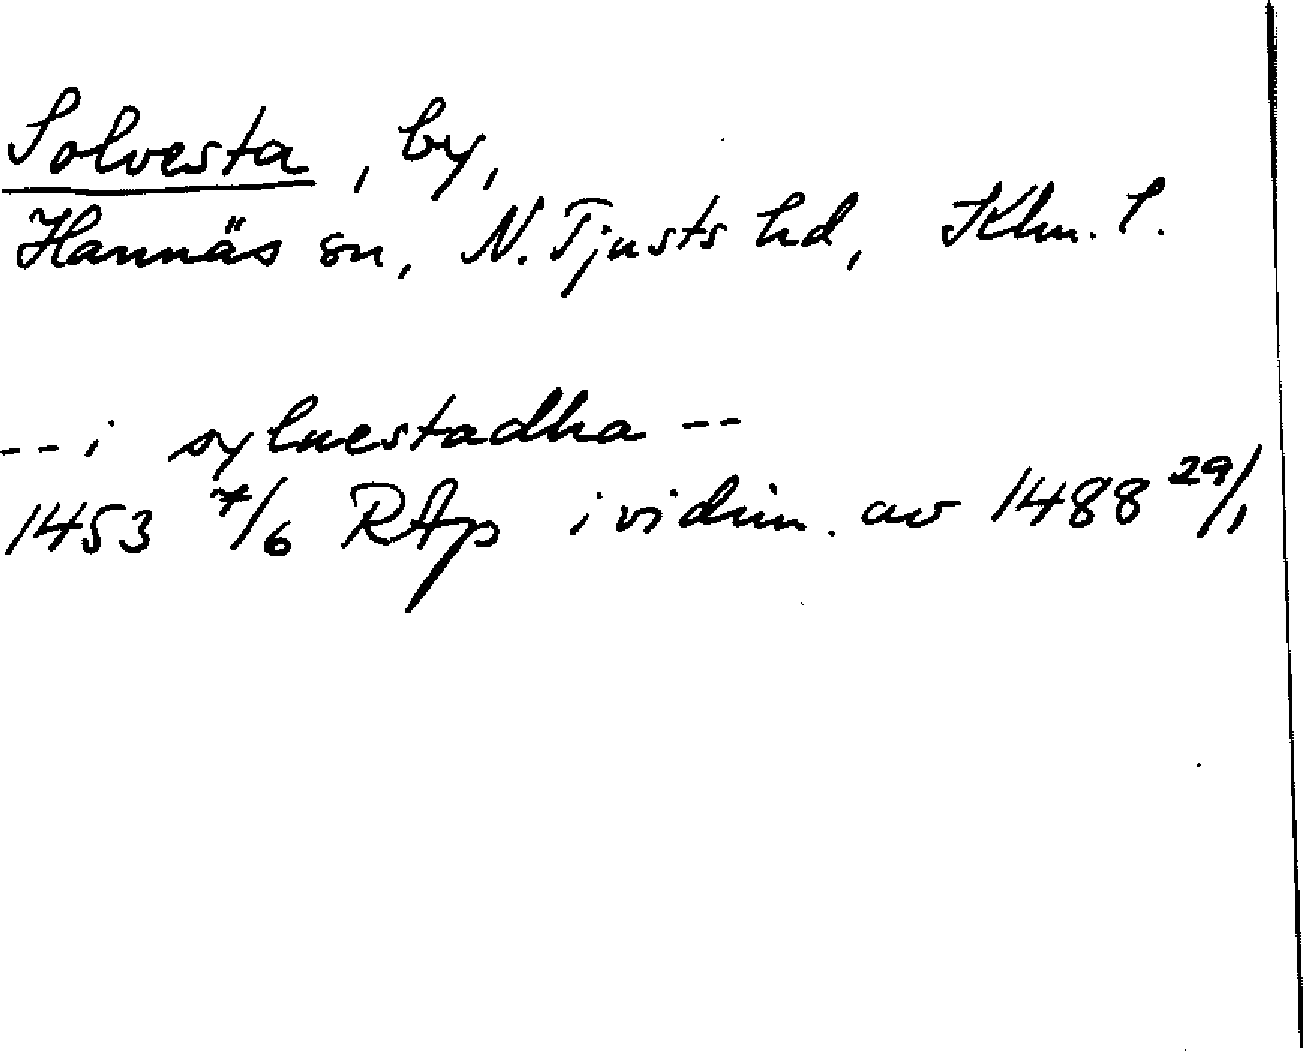 Solvesta, by,
Hannäs sn, N. Tjusts hd, Klm. l.
-- i syluestadha --
1453 7/6 RAp i vidim. av 1488 29/1